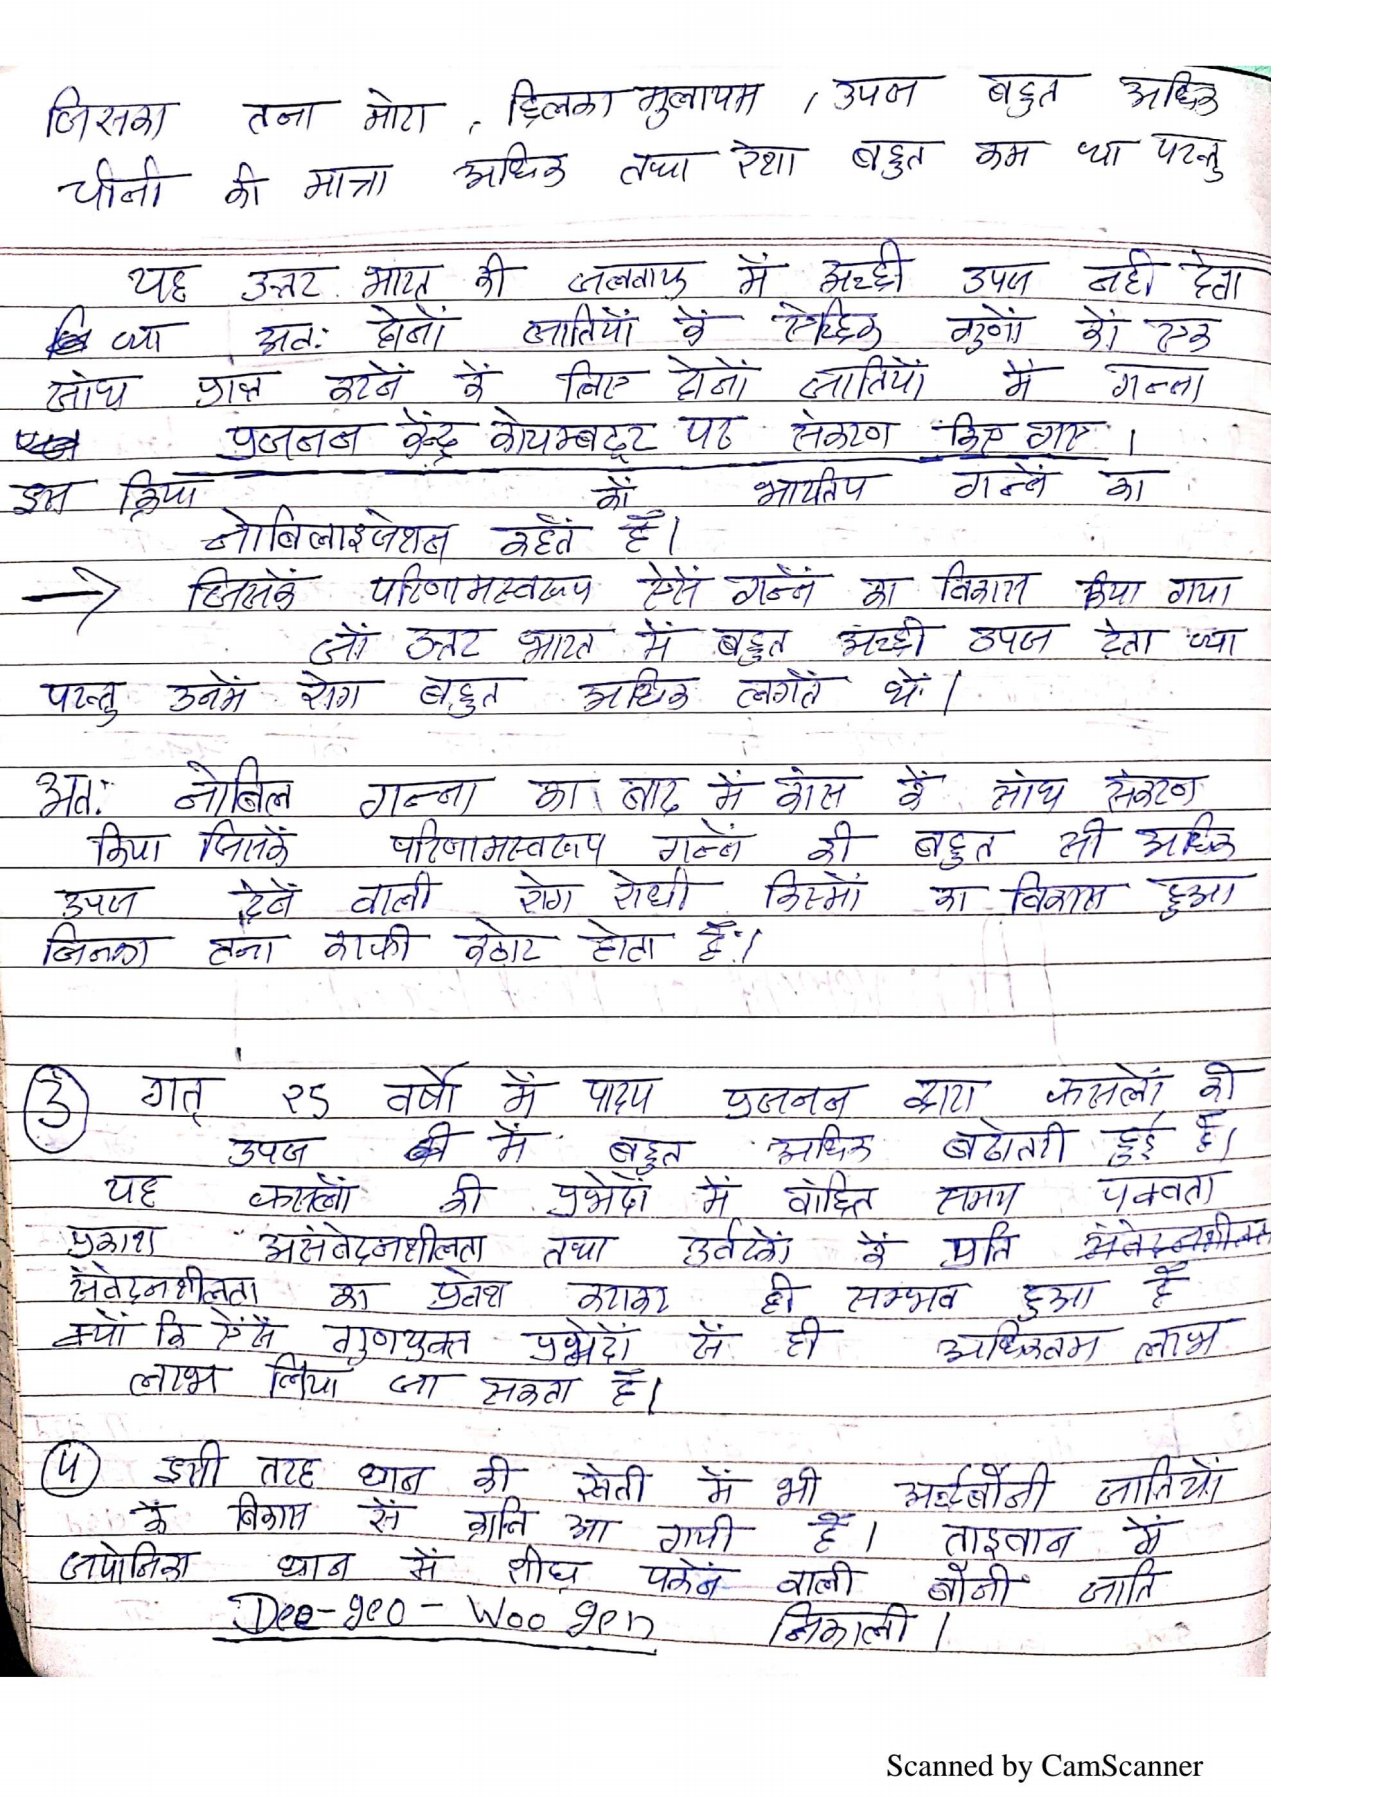 जिसका तना मोटा, छिलका मुलायम, उपज बहुत अधिक
चीनी की मात्रा अधिक तथा रेशा बहुत कम था परन्तु
यह उत्तर भारत की जलवायु में अच्छी उपज नही देता
था अतः दोनों जातियों के ऐच्छिक गुणों कों एक
साथ प्राप्त करनें कें लिए दोनों जातियों में गन्ना
प्रजनन केंन्द्र कोयम्बटूर पर संकरण किए गए।
इस क्रिया कों भारतीय गन्नें का
नोबिलाइजेशन कहतें हैं।
→ जिसकें परिणामस्वरूप ऐसें गन्नें का विकास किया गया
जों उत्तर भारत में बहुत अच्छी उपज देता था
परन्तु उनमें रोग बहुत अधिक लगतें थें।
अतः नोबिल गन्ना का बाद में कांस कें साथ संकरण
किया जिसकें परिणामस्वरूप गन्नें की बहुत सी अधिक
उपज देनें वाली रोग रोधी किस्मों का विकास हुआ
जिनका तना काफी कठोर होता हैं।
③ गत् २५ वर्षों में पादप प्रजनन द्वारा फसलों की
उपज में बहुत अधिक बढोतरी हुई हैं।
यह फसलों की प्रभेदों में वांछित समय पक्वता
प्रकाश असंवेदनशीलता तथा उर्वरकों कें प्रति संवेदनशीलता
संवेदनशीलता का प्रवेश कराकर ही सम्भव हुआ हैं
क्यों कि ऐसें गुणयुक्त प्रभेदों सें ही अधिकतम लाभ
लाभ लिया जा सकता हैं।
④ इसी तरह धान की खेती में भी अर्द्धबौनी जातियों
कें विकास सें क्रान्ति आ गयी हैं। ताइवान में
जपोनिका धान में शीघ्र पकनें वाली बौनी जाति
Dee-geo-Woo gen निकाली।
Scanned by CamScanner